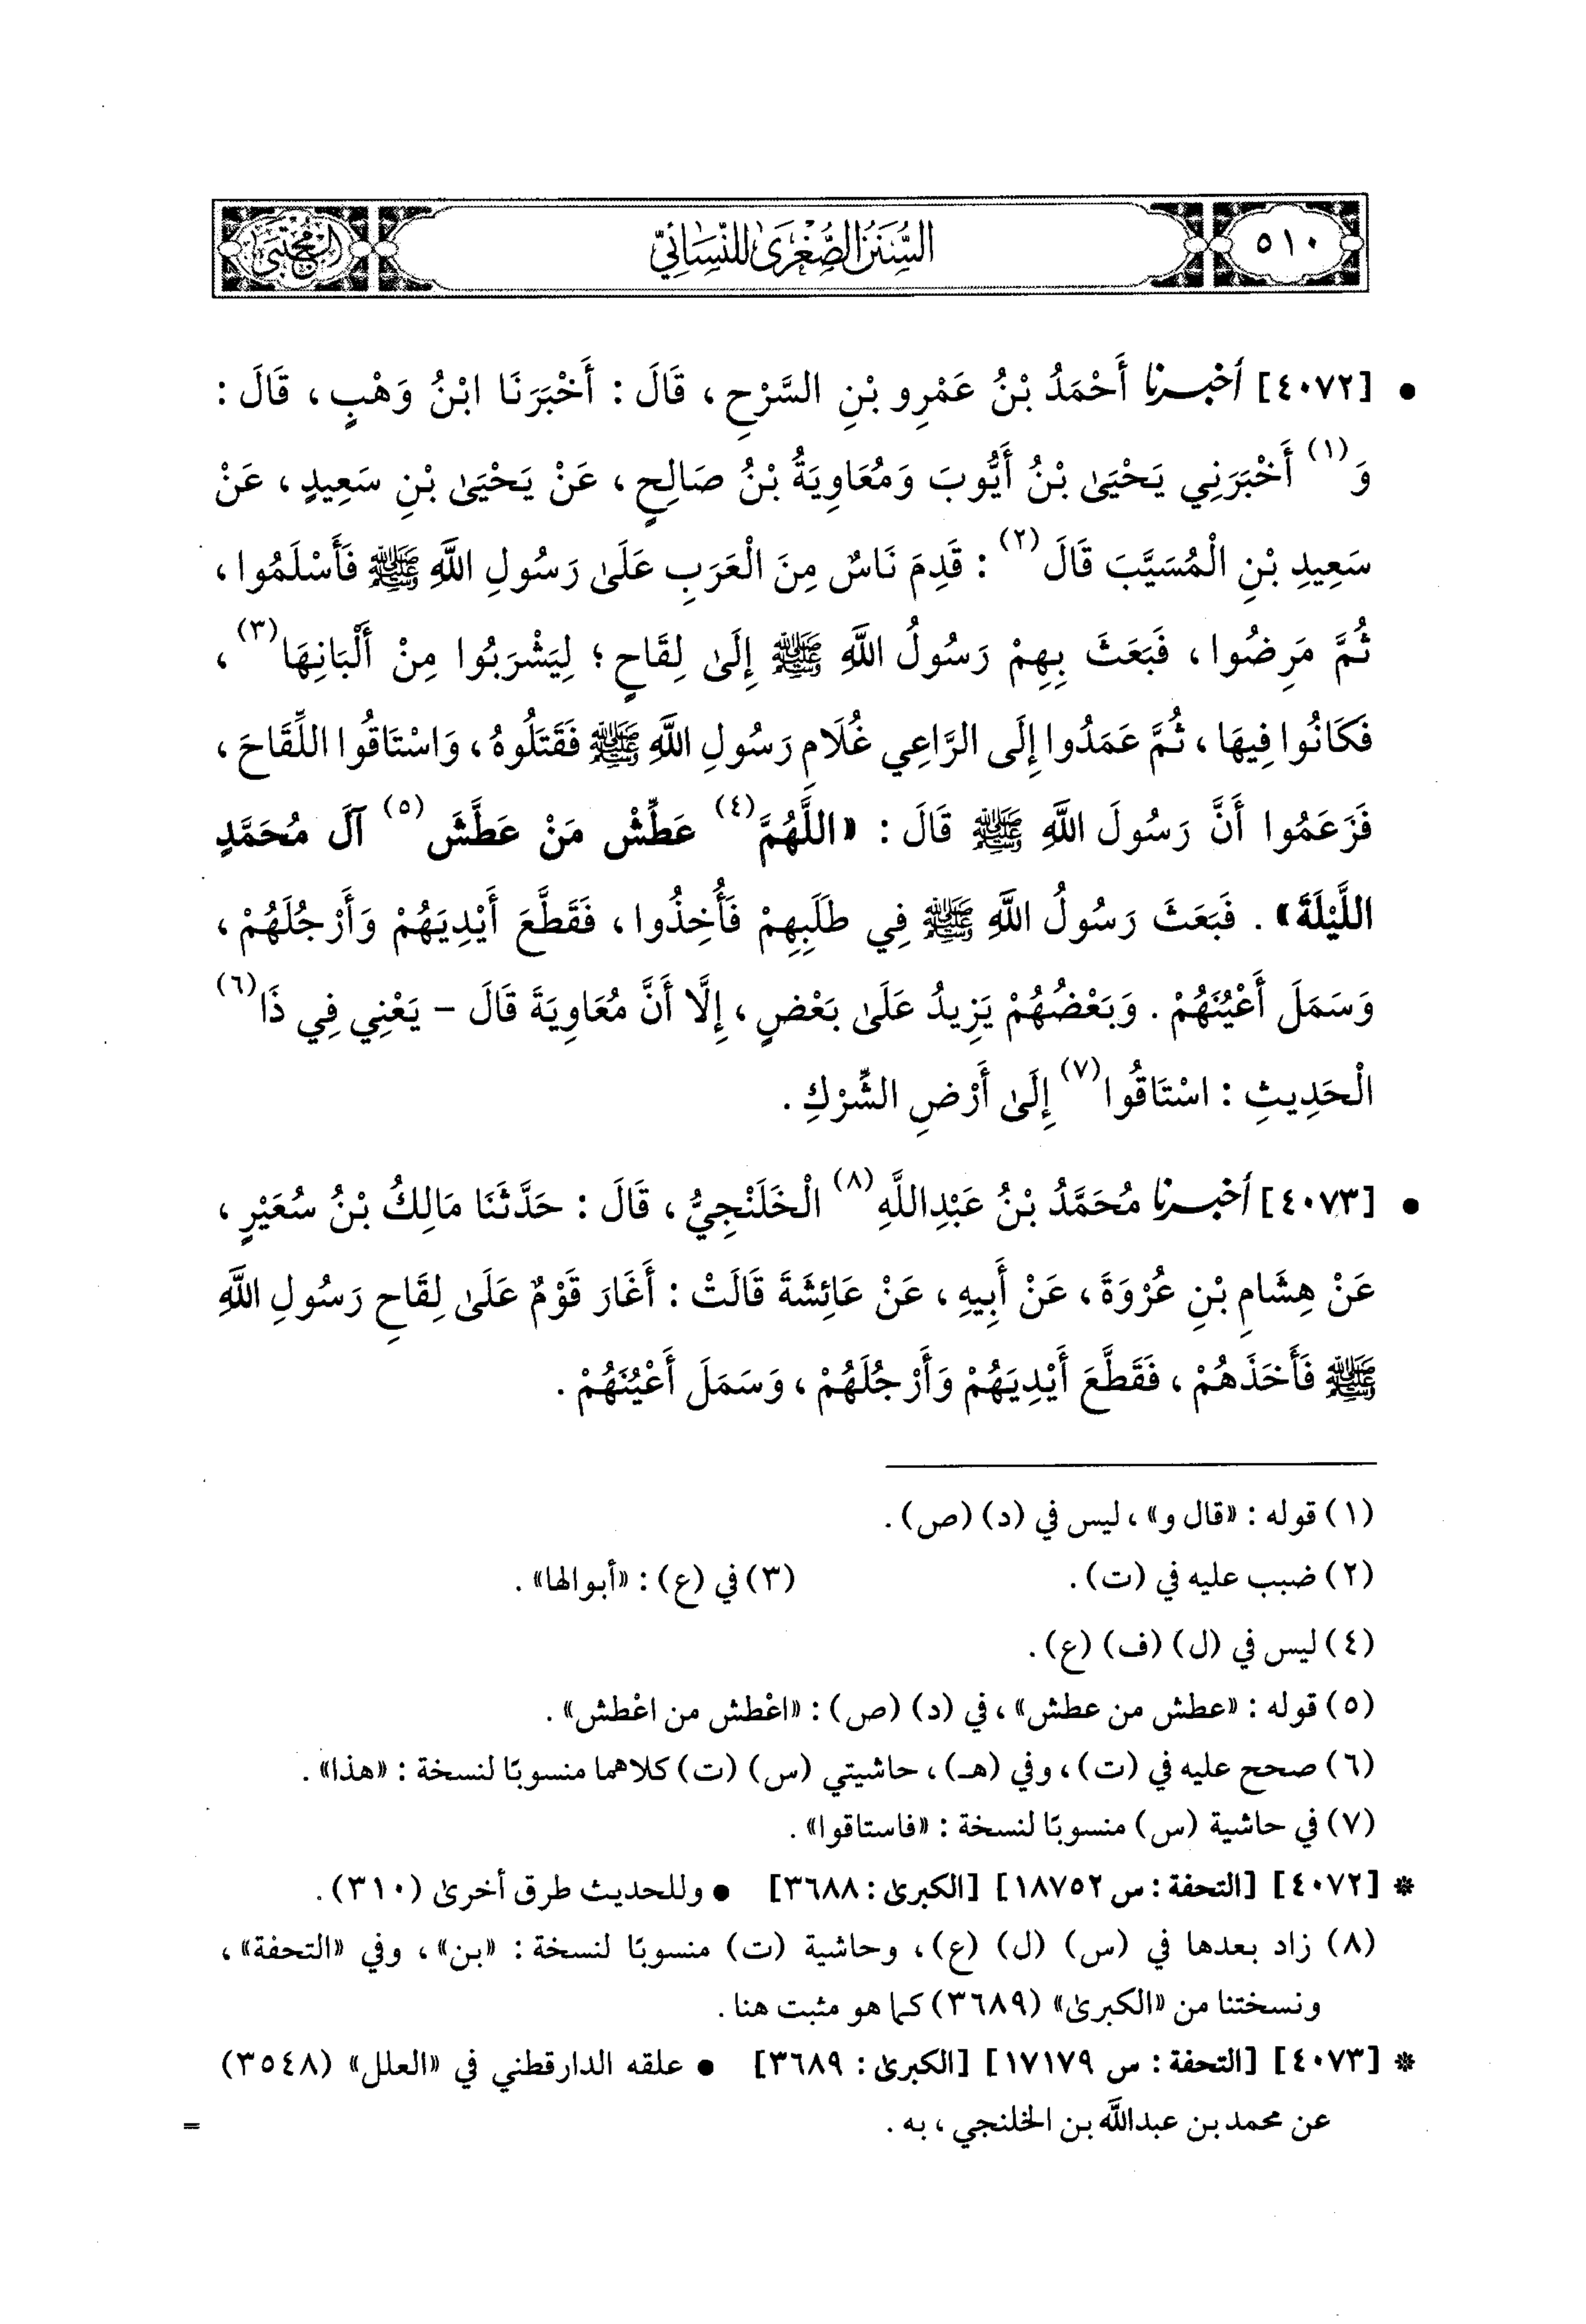 ٥١٠
السُّنَنُ الصُّغْرَىٰ لِلنَّسَائِيِّ
المجتبى
• [٤٠٧٢] أخبرنا أَحْمَدُ بْنُ عَمْرِو بْنِ السَّرْحِ، قَالَ: أَخْبَرَنَا ابْنُ وَهْبٍ، قَالَ:
وَ(١) أَخْبَرَنِي يَحْيَىٰ بْنُ أَيُّوبَ وَمُعَاوِيَةُ بْنُ صَالِحٍ، عَنْ يَحْيَىٰ بْنِ سَعِيدٍ، عَنْ
سَعِيدِ بْنِ الْمُسَيَّبِ قَالَ(٢): قَدِمَ نَاسٌ مِنَ الْعَرَبِ عَلَىٰ رَسُولِ اللَّهِ ﷺ فَأَسْلَمُوا،
ثُمَّ مَرِضُوا، فَبَعَثَ بِهِمْ رَسُولُ اللَّهِ ﷺ إِلَىٰ لِقَاحٍ؛ لِيَشْرَبُوا مِنْ أَلْبَانِهَا(٣)،
فَكَانُوا فِيهَا، ثُمَّ عَمَدُوا إِلَى الرَّاعِي غُلَامِ رَسُولِ اللَّهِ ﷺ فَقَتَلُوهُ، وَاسْتَاقُوا اللِّقَاحَ،
فَزَعَمُوا أَنَّ رَسُولَ اللَّهِ ﷺ قَالَ: «اللَّهُمَّ(٤) عَطِّشْ مَنْ عَطَّشَ(٥) آلَ مُحَمَّدٍ
اللَّيْلَةَ». فَبَعَثَ رَسُولُ اللَّهِ ﷺ فِي طَلَبِهِمْ فَأُخِذُوا، فَقَطَّعَ أَيْدِيَهُمْ وَأَرْجُلَهُمْ،
وَسَمَلَ أَعْيُنَهُمْ. وَبَعْضُهُمْ يَزِيدُ عَلَىٰ بَعْضٍ، إِلَّا أَنَّ مُعَاوِيَةَ قَالَ - يَعْنِي فِي ذَا(٦)
الْحَدِيثِ: اسْتَاقُوا(٧) إِلَىٰ أَرْضِ الشِّرْكِ.
• [٤٠٧٣] أخبرنا مُحَمَّدُ بْنُ عَبْدِاللَّهِ(٨) الْخَلَنْجِيُّ، قَالَ: حَدَّثَنَا مَالِكُ بْنُ سُعَيْرٍ،
عَنْ هِشَامِ بْنِ عُرْوَةَ، عَنْ أَبِيهِ، عَنْ عَائِشَةَ قَالَتْ: أَغَارَ قَوْمٌ عَلَىٰ لِقَاحِ رَسُولِ اللَّهِ
ﷺ فَأَخَذَهُمْ، فَقَطَّعَ أَيْدِيَهُمْ وَأَرْجُلَهُمْ، وَسَمَلَ أَعْيُنَهُمْ.
(١) قوله: «قال و»، ليس في (د) (ص).
(٢) ضبب عليه في (ت). (٣) في (ع): «أبوالها».
(٤) ليس في (ل) (ف) (ع).
(٥) قوله: «عطش من عطش»، في (د) (ص): «اعْطش من اعْطش».
(٦) صحح عليه في (ت)، وفي (هـ)، حاشيتي (س) (ت) كلاهما منسوبًا لنسخة: «هذا».
(٧) في حاشية (س) منسوبًا لنسخة: «فاستاقوا».
* [٤٠٧٢] [التحفة: س ١٨٧٥٢] [الكبرىٰ: ٣٦٨٨] • وللحديث طرق أخرىٰ (٣١٠).
(٨) زاد بعدها في (س) (ل) (ع)، وحاشية (ت) منسوبًا لنسخة: «بن»، وفي «التحفة»،
ونسختنا من «الكبرىٰ» (٣٦٨٩) كما هو مثبت هنا.
* [٤٠٧٣] [التحفة: س ١٧١٧٩] [الكبرىٰ: ٣٦٨٩] • علقه الدارقطني في «العلل» (٣٥٤٨)
عن محمد بن عبدالله بن الخلنجي، به.
=